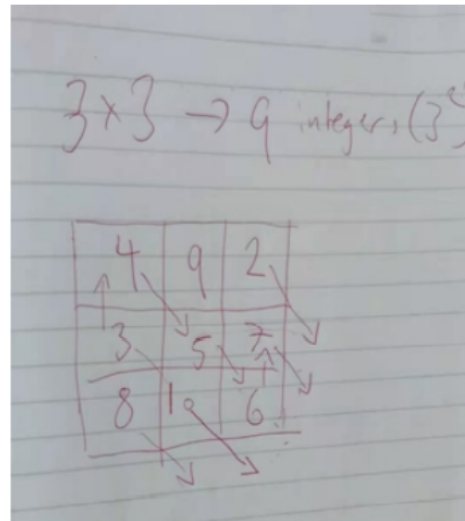 3×3 → 9 integers (3²)
4 9 2
3 5 7
8 1 6